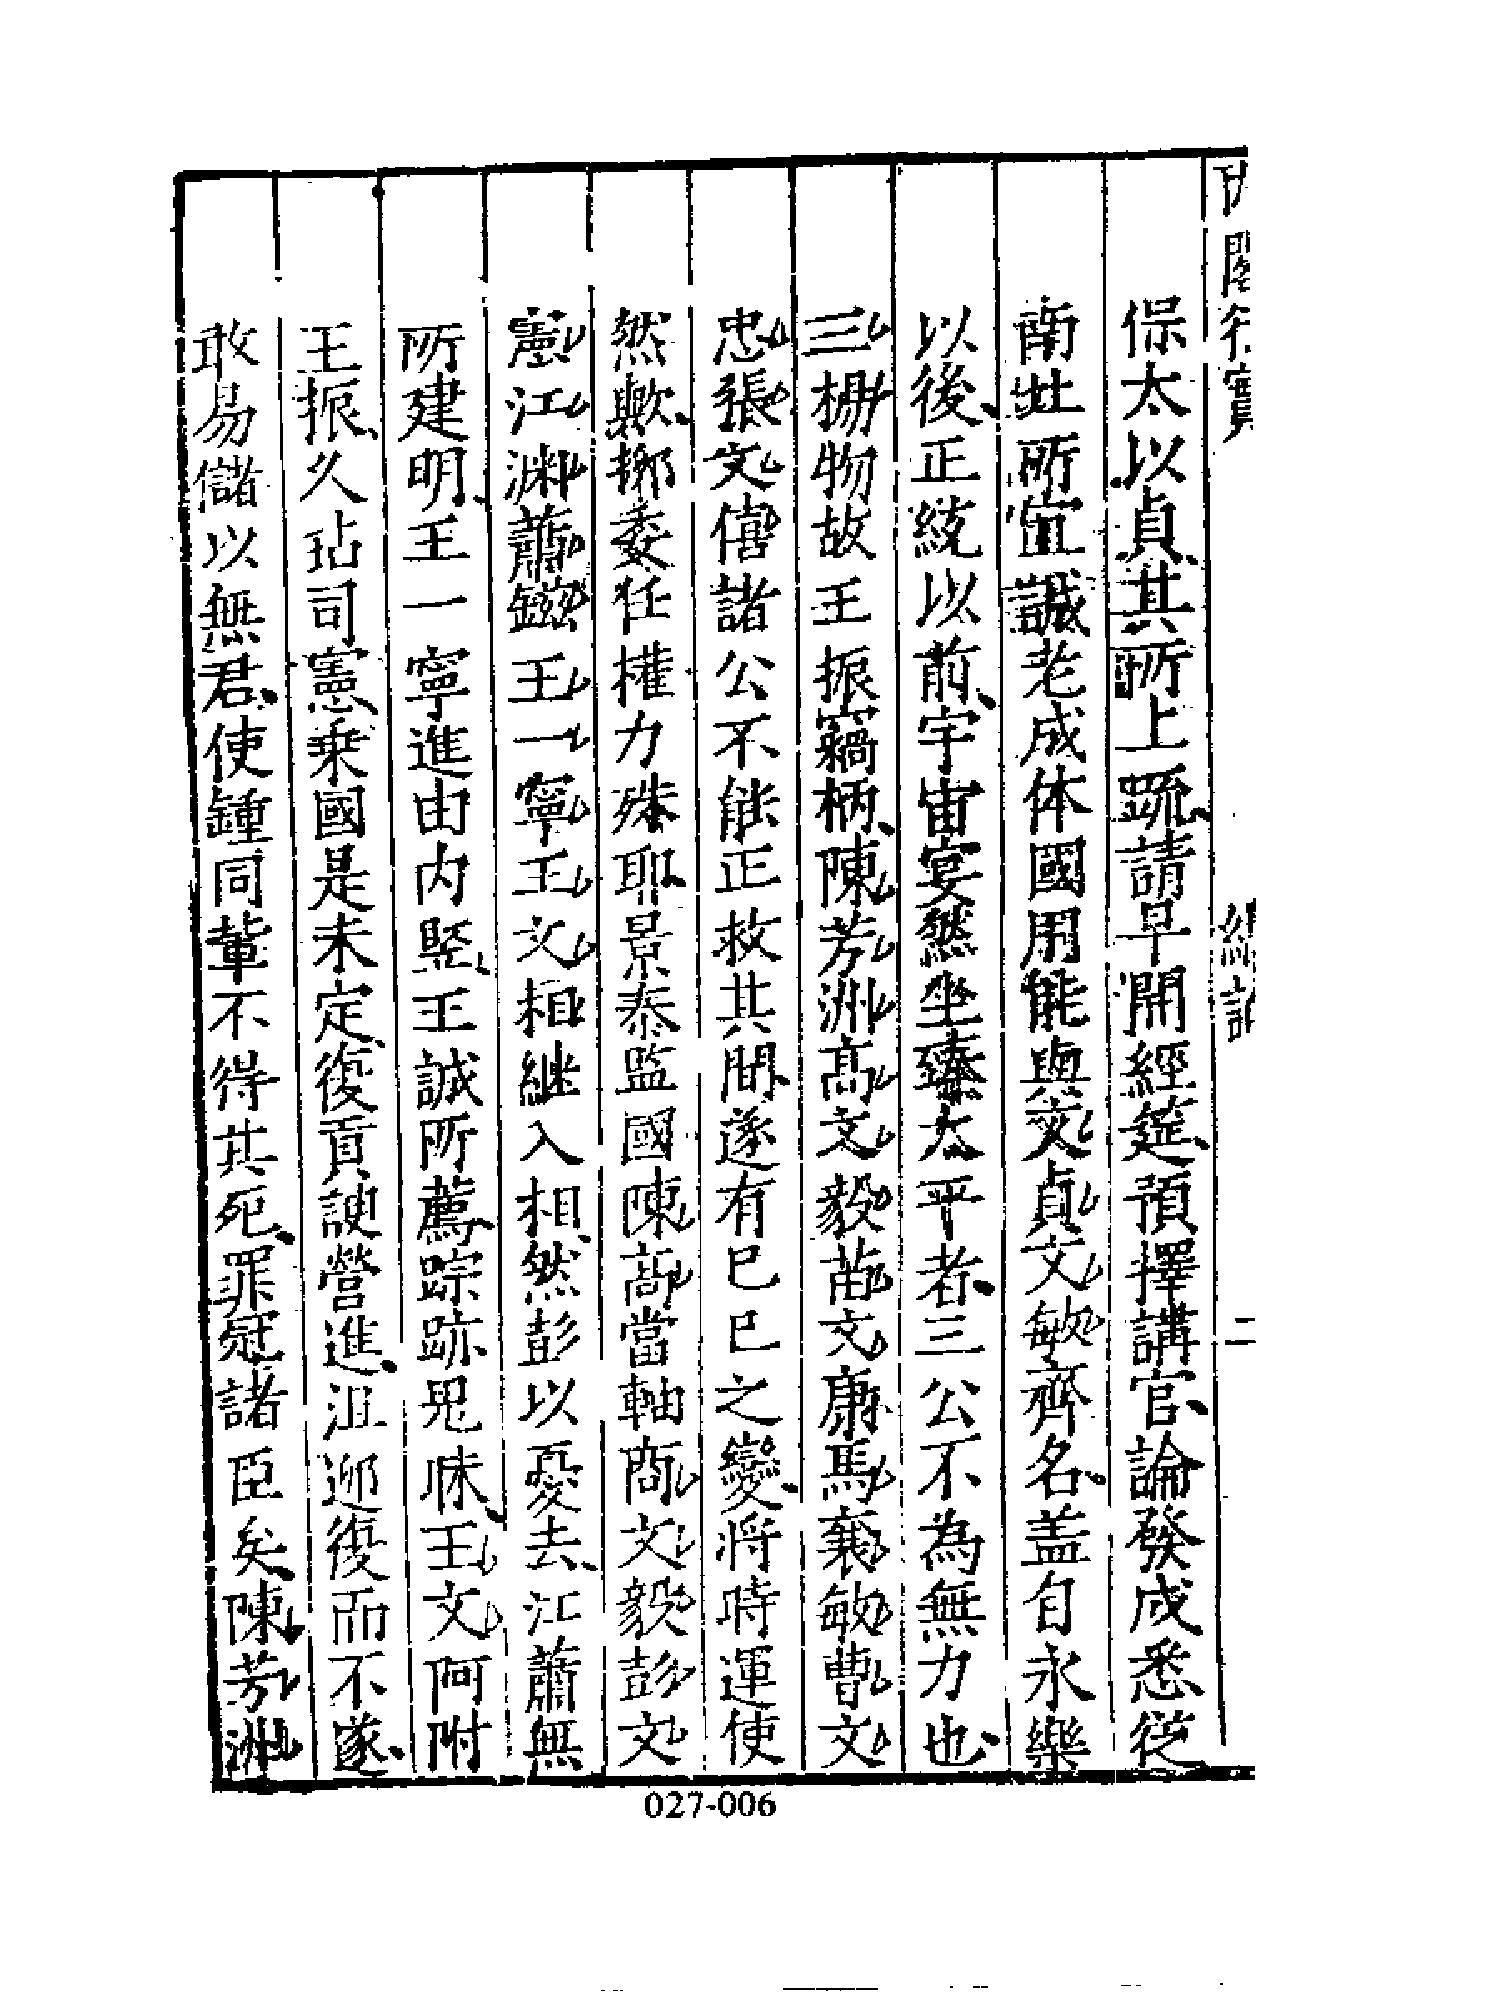 內閣行實
總論
二
保太以貞其所上疏請早開經筵預擇講官論發成悉從
南北所宜誠老成体國用能與文貞文敏齊名盖自永樂
以後正統以前宇宙宴然坐臻太平者三公不為無力也
三楊物故王振竊柄陳芳洲高文毅苗文康馬襄敏曹文
忠張文僖諸公不能正救其間遂有已巳之變將時運使
然歟抑委任權力殊耶景泰監國陳高當軸商文毅彭文
憲江淵蕭鎡王一寧王文相継入相然彭以憂去江蕭無
所建明王一寧進由内竪王誠所薦踪跡晃昧王文阿附
王振久玷司憲乗國是未定復貢諛營進沮迎復而不遂
敢易儲以無君使鍾同軰不得其死罪冠諸臣矣陳芳洲
027-006